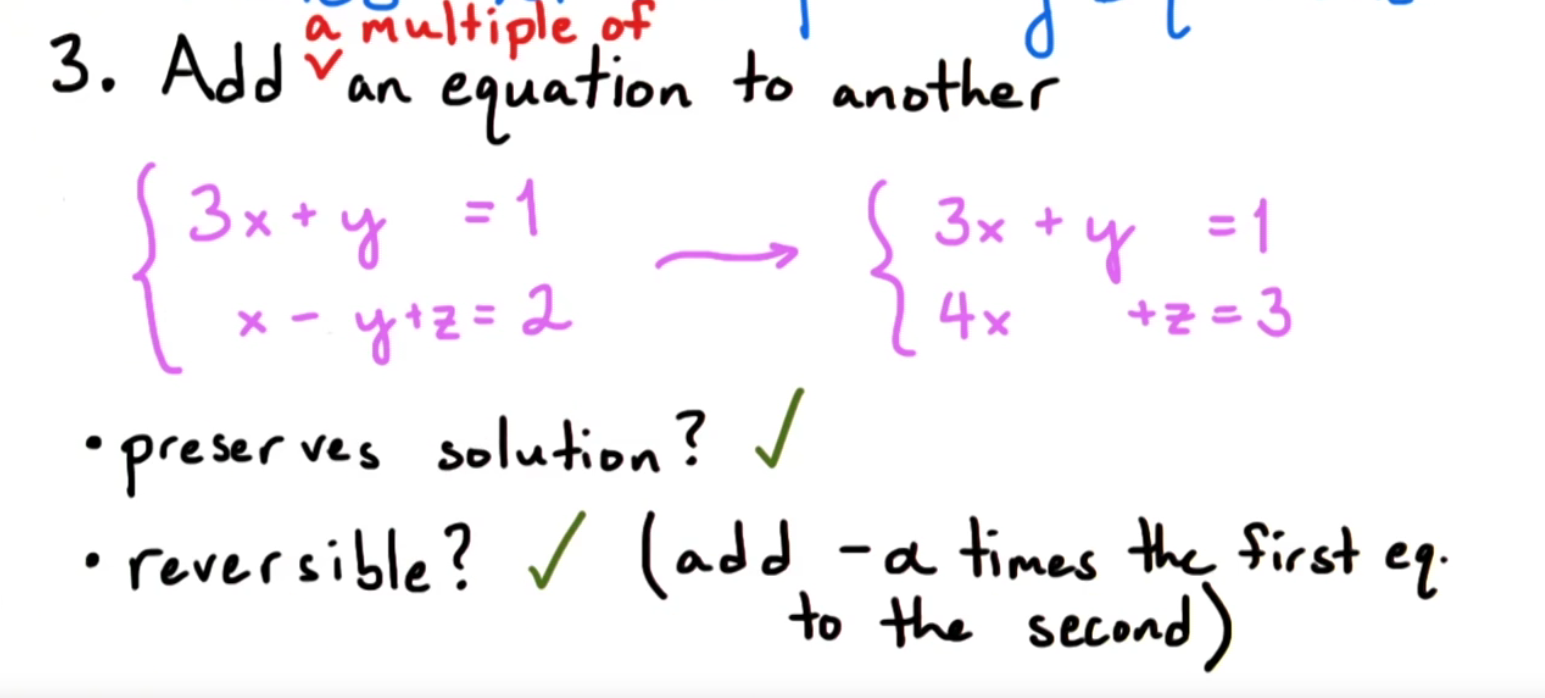 a multiple of
3. Add ˅ an equation to another
3x + y = 1
x - y + z = 2
3x + y = 1
4x + z = 3
• preserves solution? ✓
• reversible? ✓ (add -a times the first eq.
to the second)